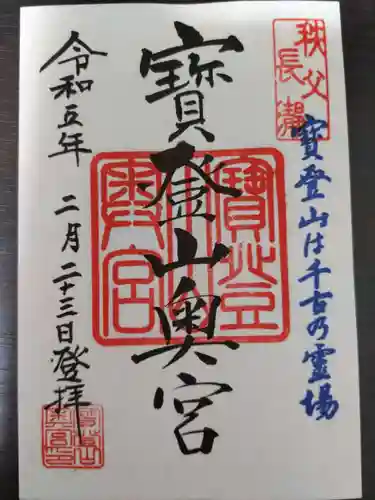 秩父
長瀞
寶登山は千古の霊場
寶登山奥宮
寶登山
奥宮
令和五年 二月二十三日登拝